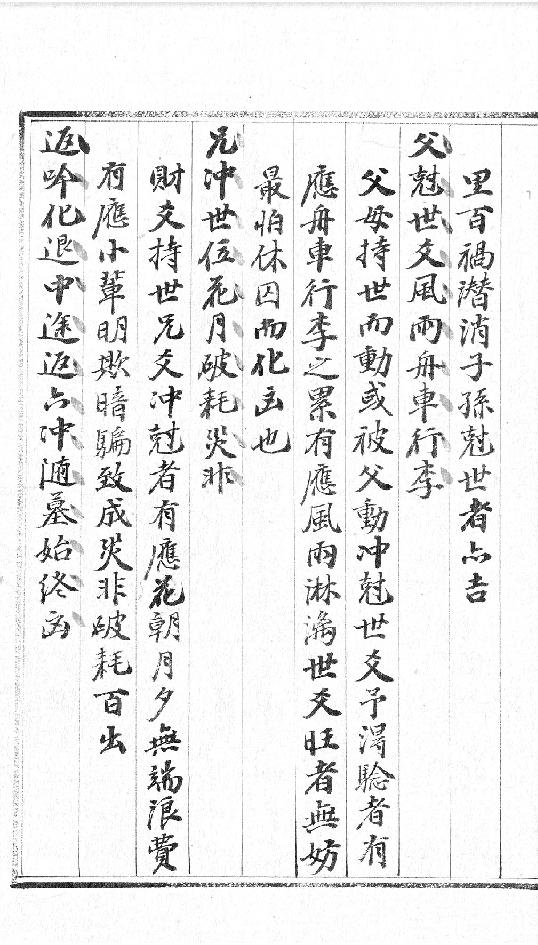 里百禍潛消子孫尅世者亦吉
父尅世爻風雨舟車行李
父母持世而動或被父動冲尅世爻予得驗者有
應舟車行李之累有應風雨淋漓世爻旺者無妨
最怕休囚而化凶也
兄冲世位花月破耗災非
財爻持世兄爻冲尅者有應花朝月夕無端浪費
有應小輩明欺暗騙致成災非破耗百出
返吟化退中途返六冲隨墓始終凶